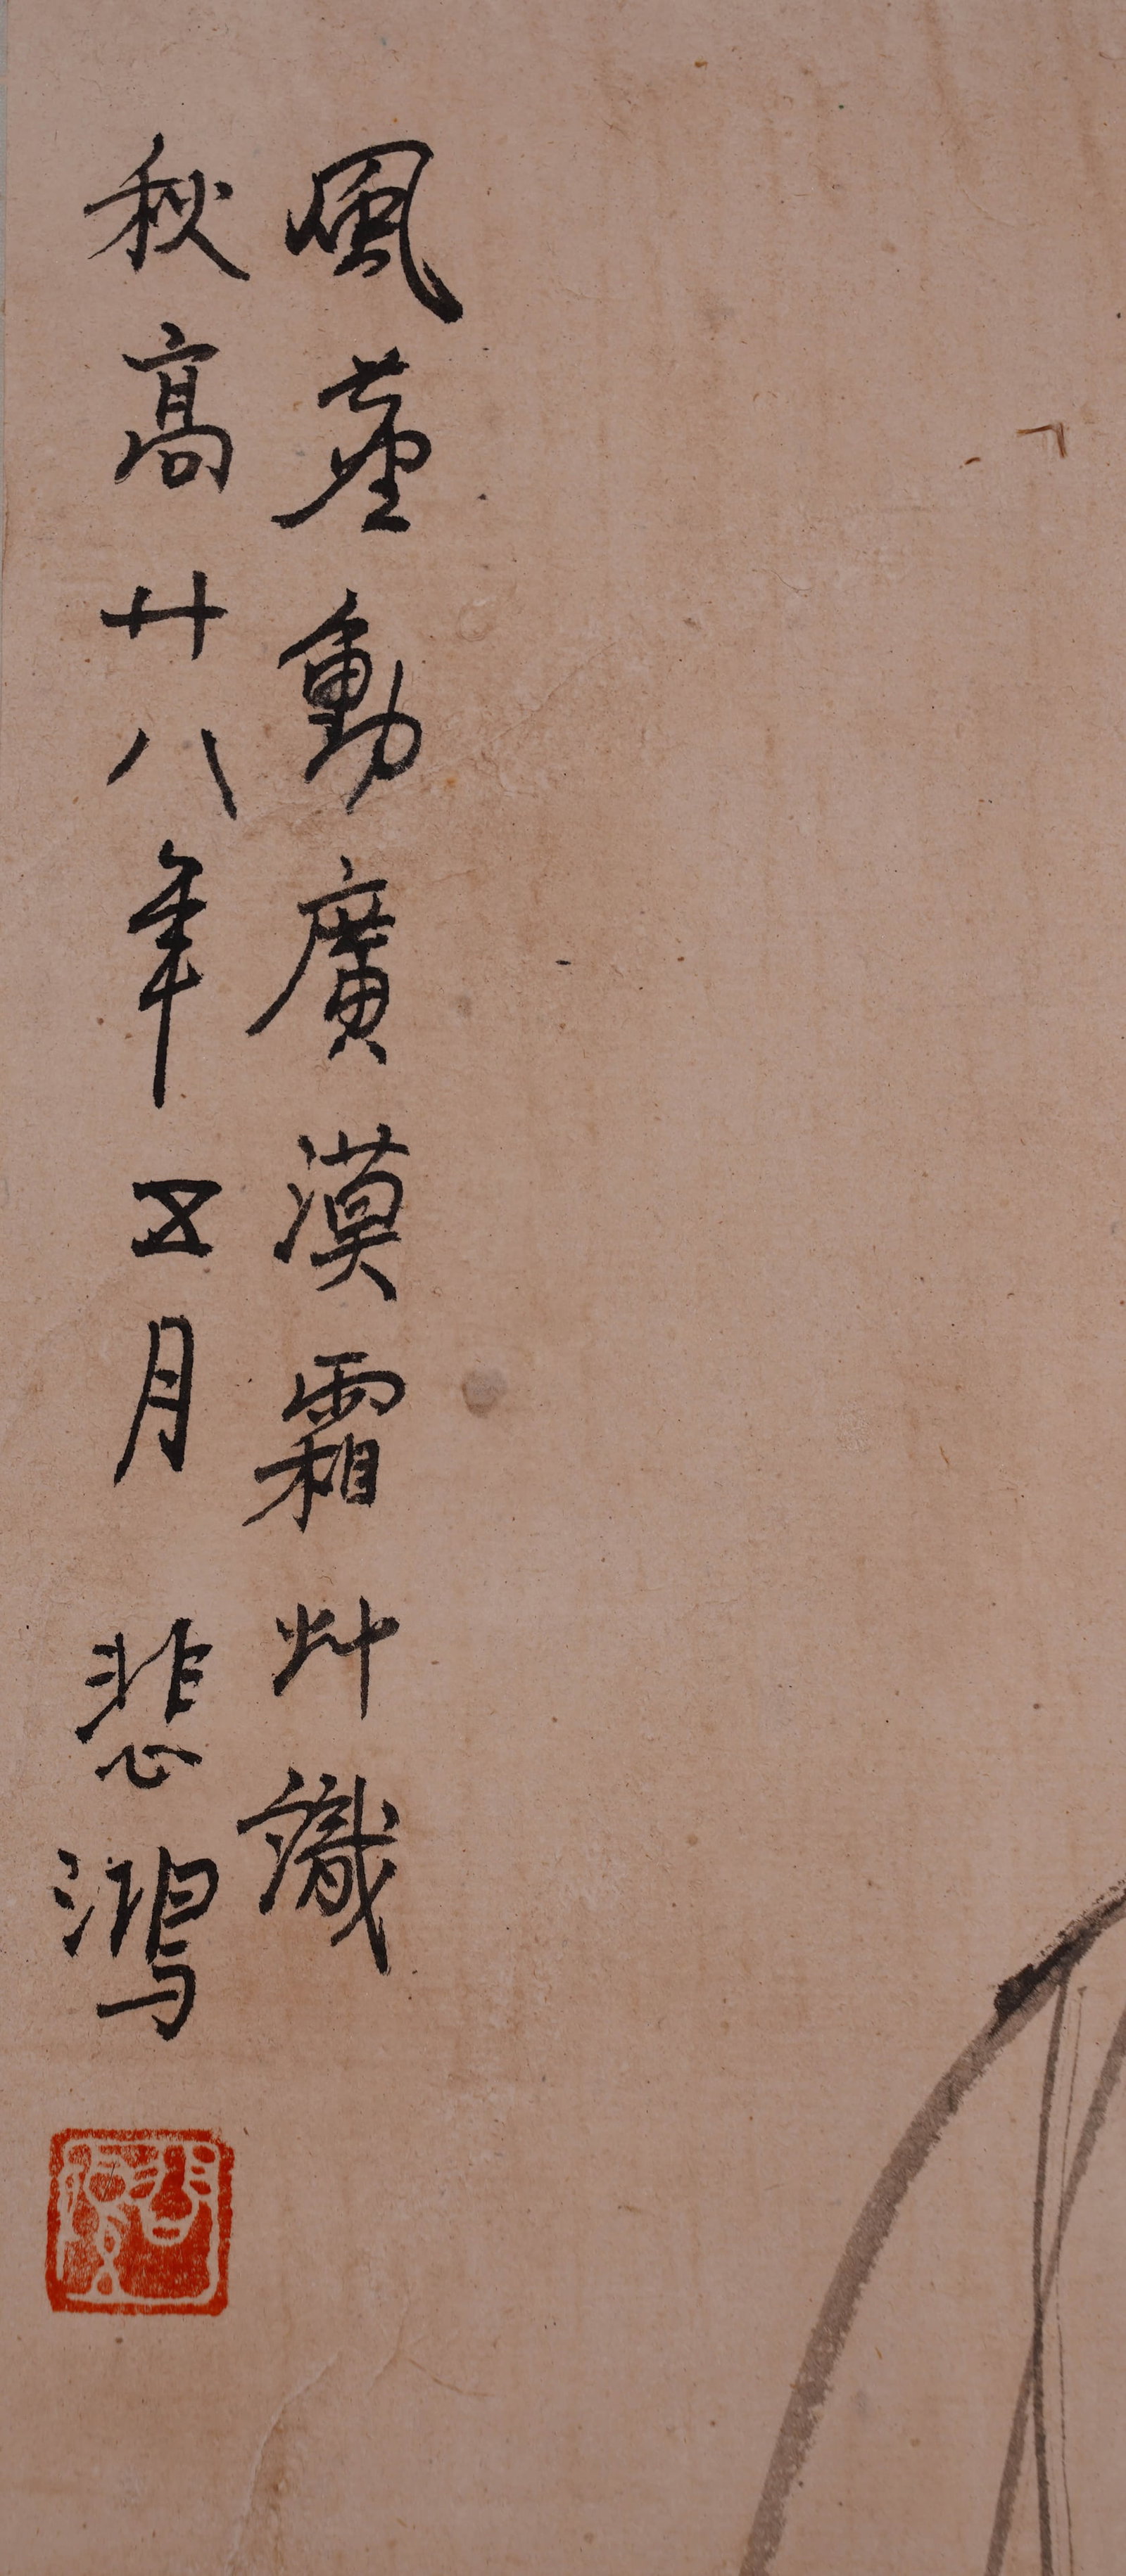 風塵動廣漠霜艸識
秋高廿八年五月 悲鴻